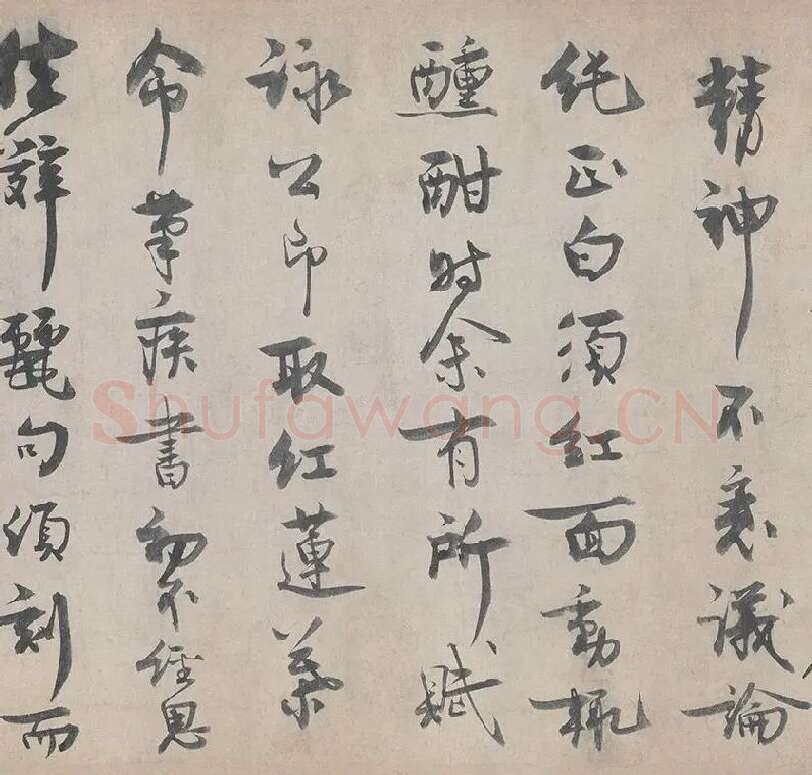 精神不衰議論
純正白須紅面動輒
醺酣时余有所賦
詠公即取紅蓮葉
命筆疾書初不經思
佳辭麗句頃刻而
Shufawang.CN